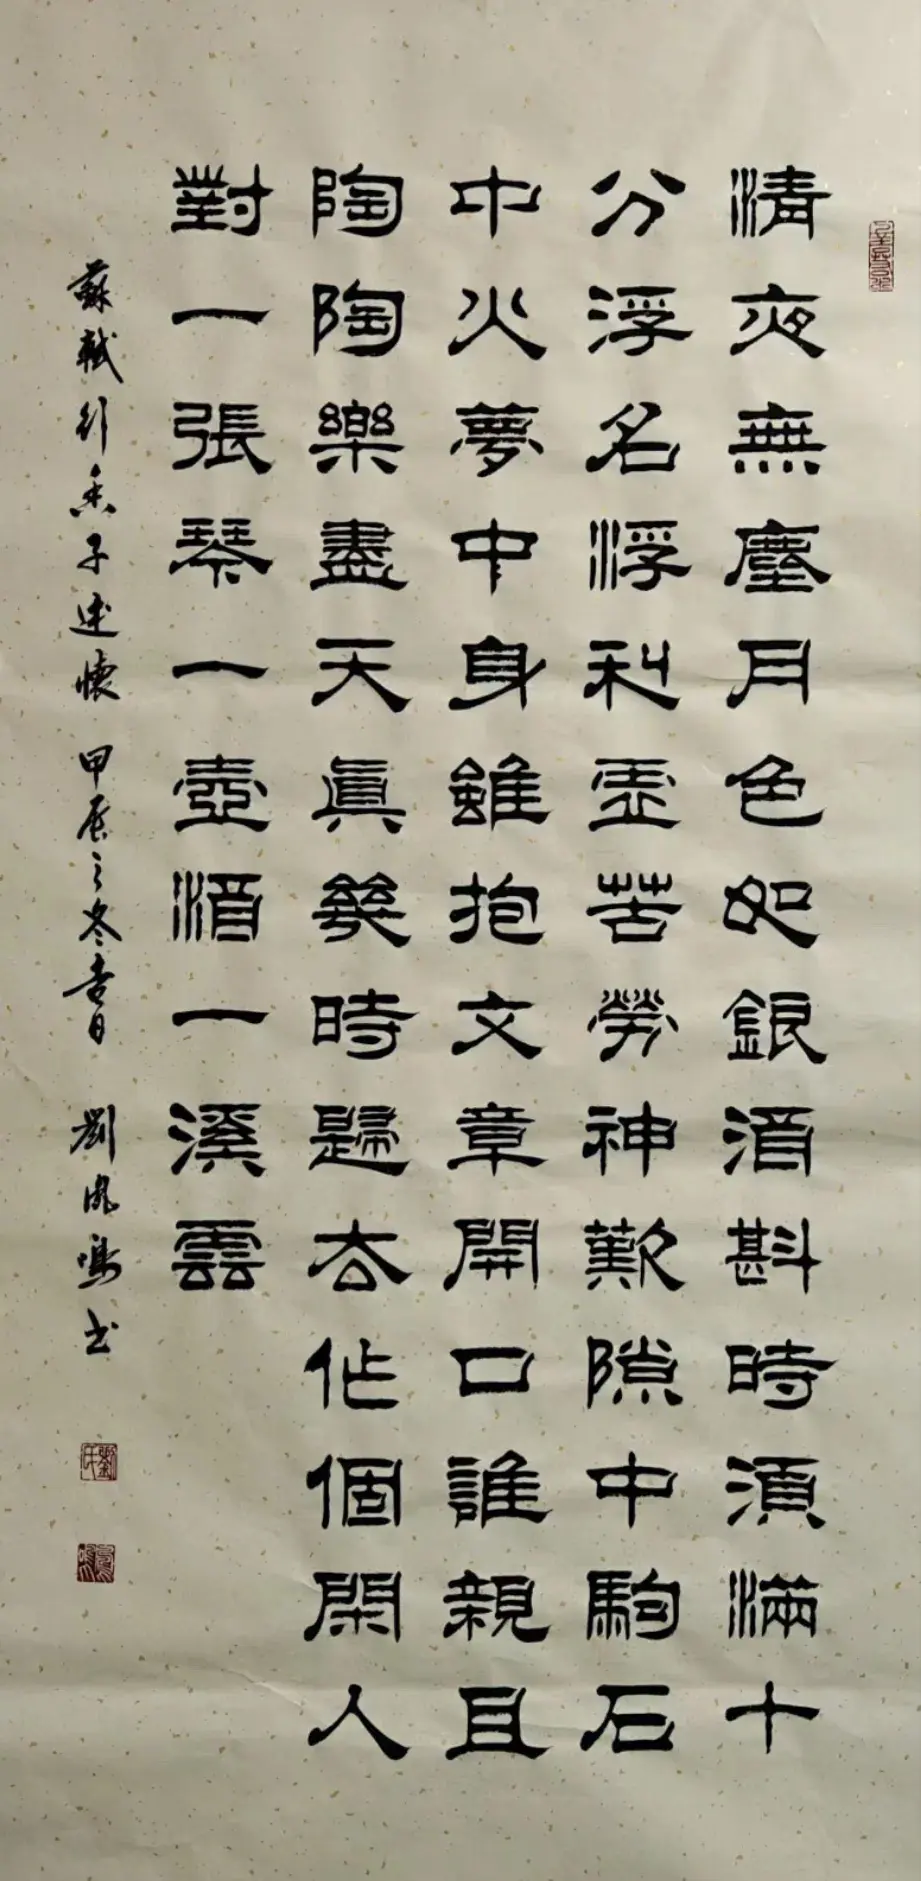 清夜無塵月色如銀酒斟時須滿十
分浮名浮利虛苦勞神歎隙中駒石
中火夢中身雖抱文章開口誰親且
陶陶樂盡天眞幾時歸去作個閑人
對一張琴一壺酒一溪雲
蘇軾行香子述懷 甲辰之冬吉日 劉鳳鳴书
劉氏
鳳鳴